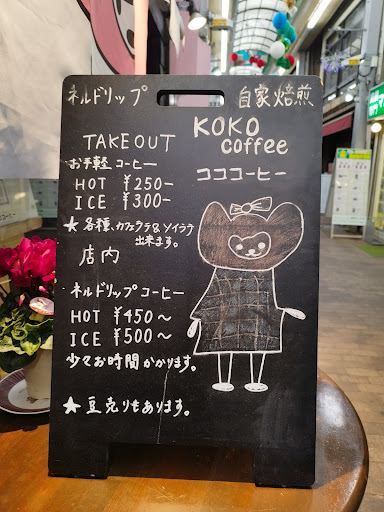 ネルドリップ
自家焙煎
KOKO
coffee
コココーヒー
TAKEOUT
お手軽コーヒー
HOT ¥250-
ICE ¥300-
★各種、カフェラテ&ソイラテ
出来ます。
店内
ネルドリップコーヒー
HOT ¥450〜
ICE ¥500〜
少々お時間かかります。
★豆売りもあります。